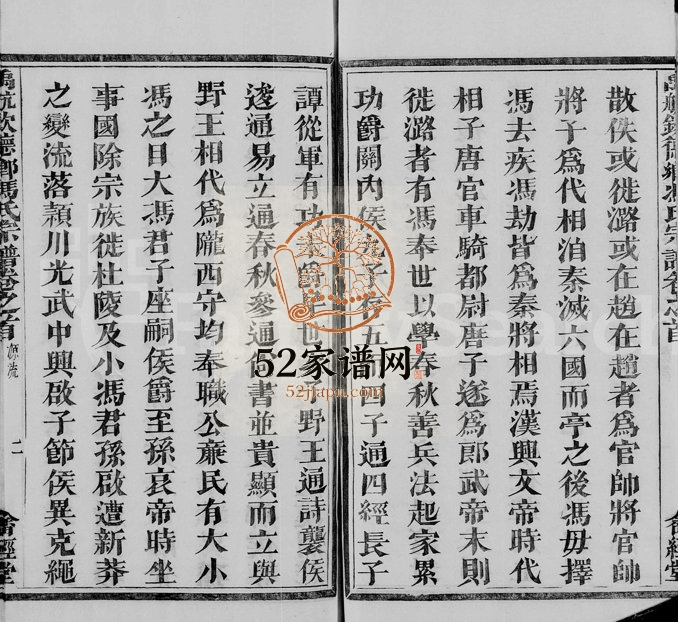 散佚或徙潞或在趙在趙者爲官帥將官帥
將子爲代相洎秦滅六國而亭之後馮毋擇
馮去疾馮劫皆爲秦將相焉漢興文帝時代
相子唐官車騎都尉唐子遂爲郎武帝末則
徙潞者有馮奉世以學春秋善兵法起家累
功爵關內侯 子 五 四子通四經長子
譚從軍有功 爵 世 子野王通詩襲侯
逡通易立通春秋參通 書並貴顯而立與
野王相代爲隴西守均奉職公亷民有大小
馮之目大馮君子座嗣侯爵至孫哀帝時坐
事國除宗族徙杜陵及小馮君孫啟遭新莽
之變流落潁川光武中興啟子節侯異克繩
禹航欽德鄉馮氏宗譜卷之首
源流
二
會經堂
52家谱网
52jiapu.com